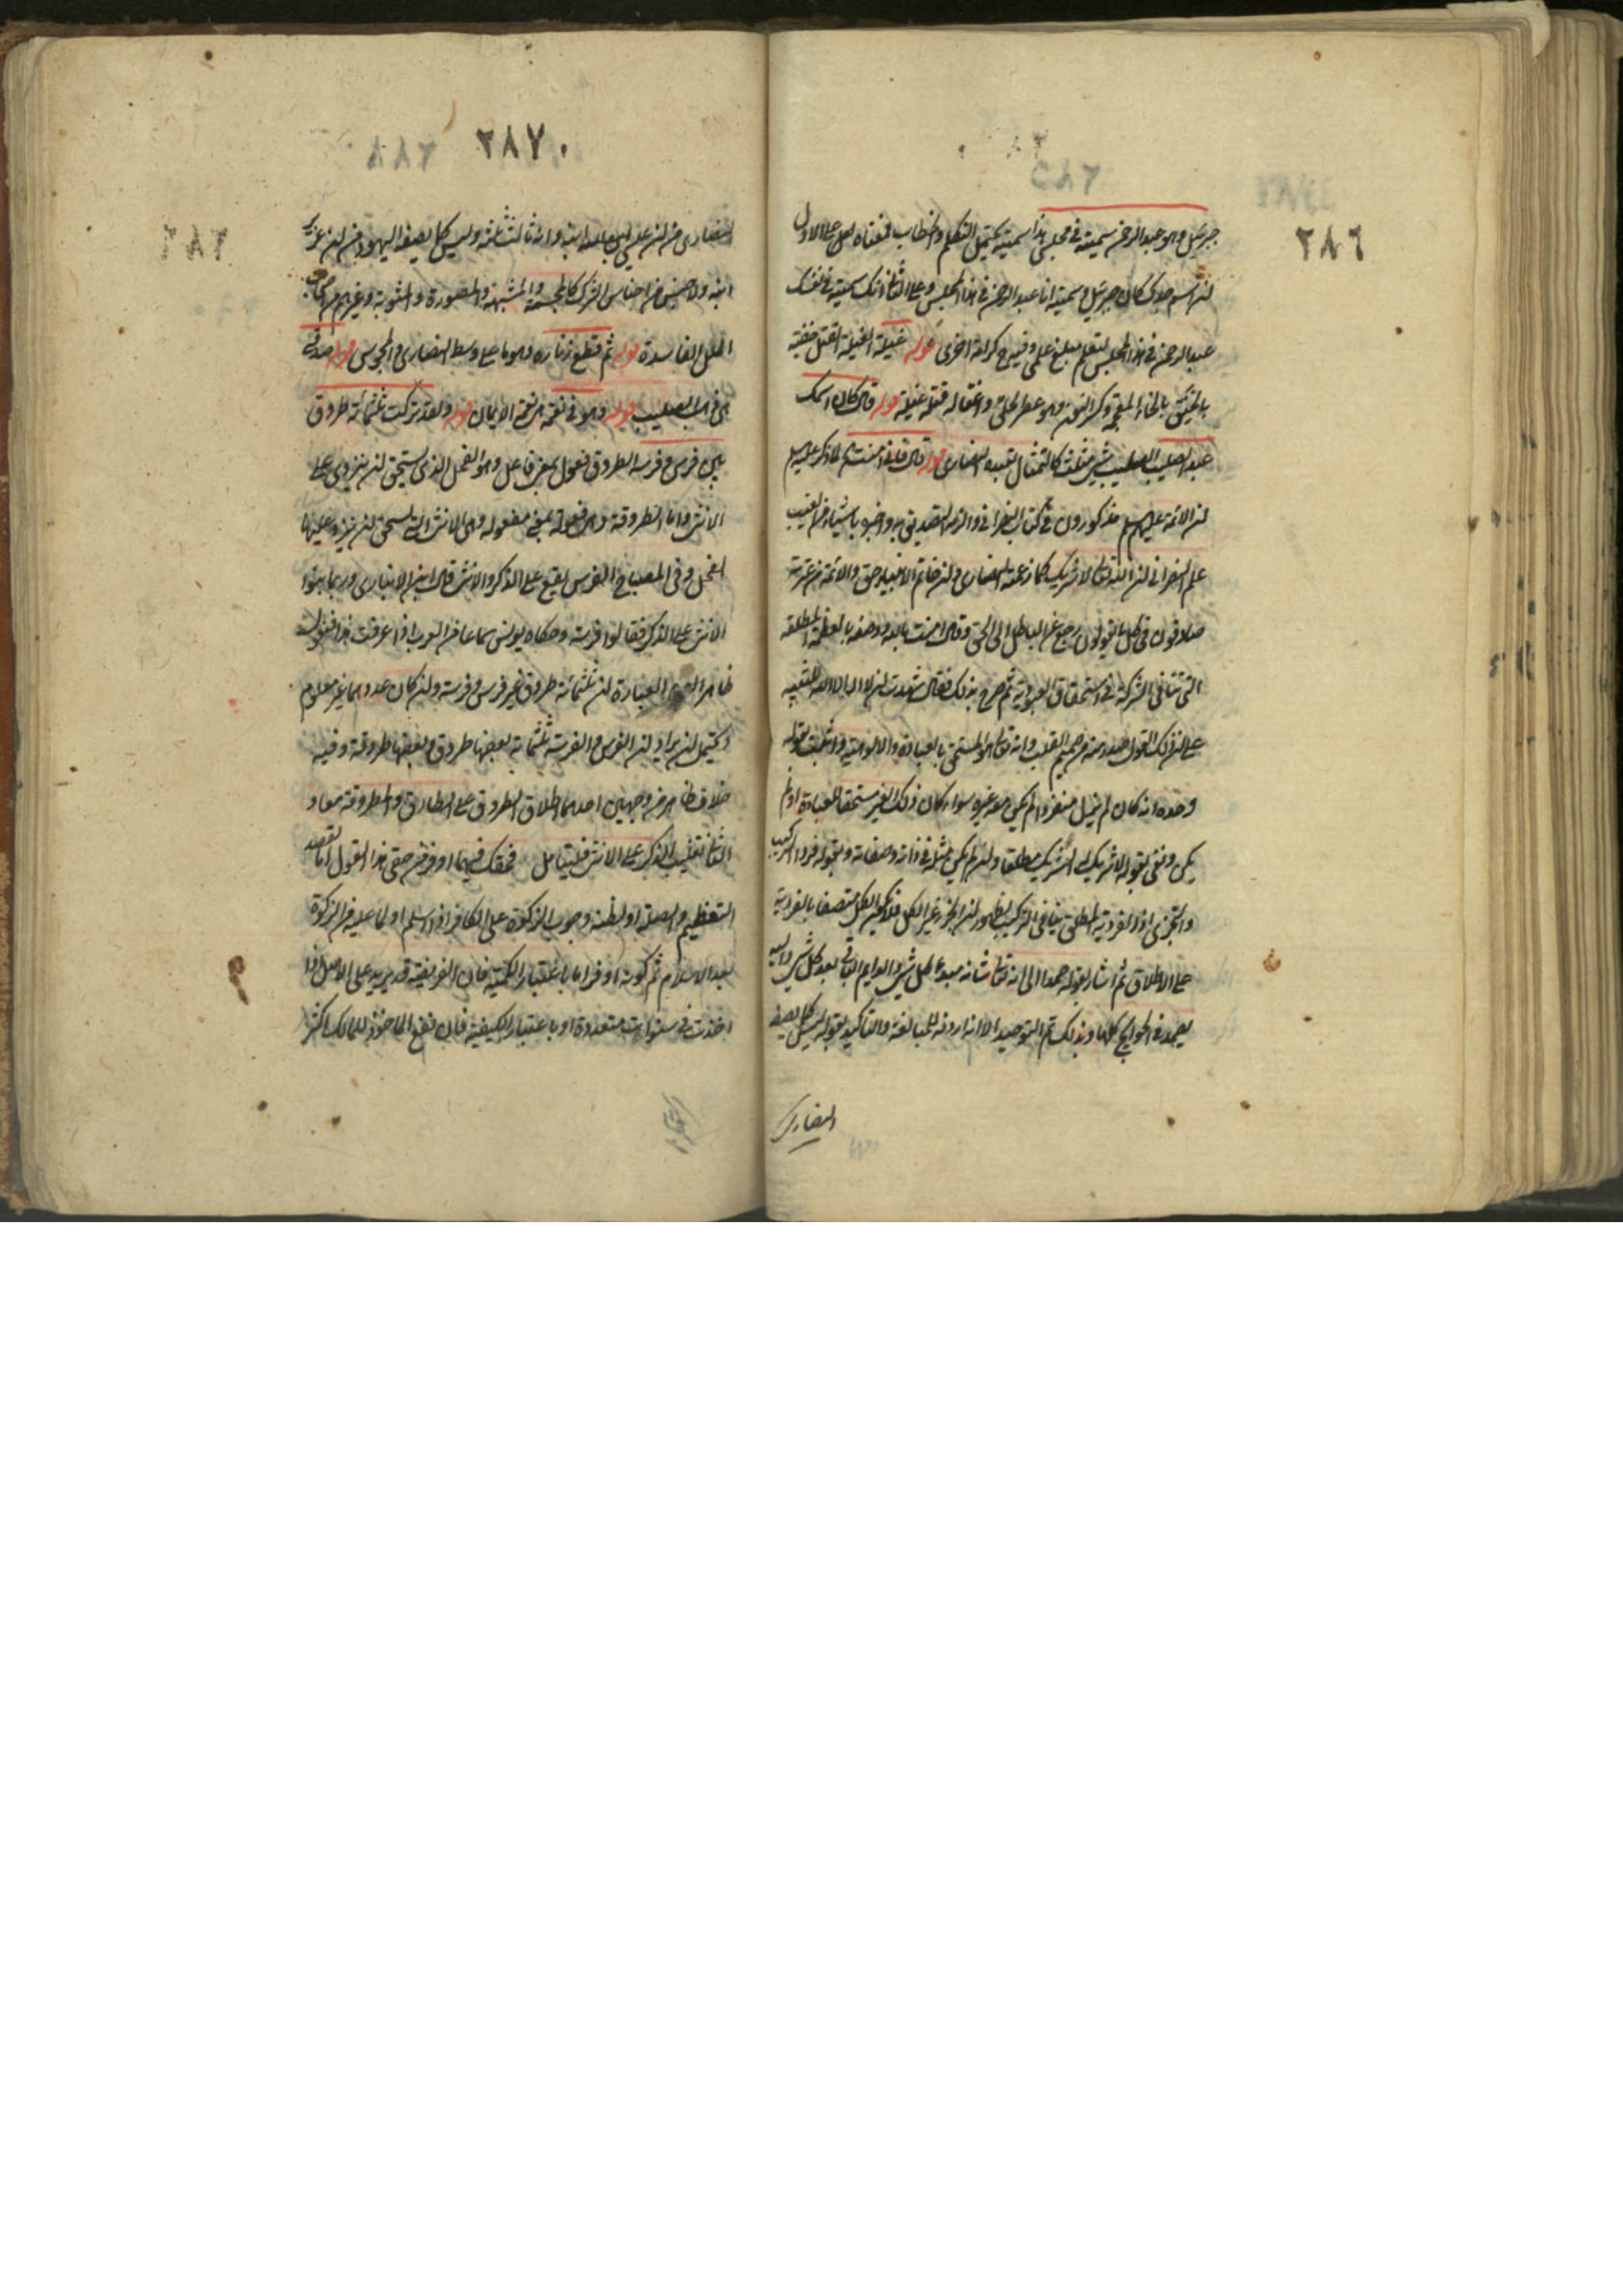 ٢٨٦
جبرئيل وهو عبد الرحمن سميته في مجلسي هذا سميته يحتمل التكلم والخطاب فمعناه على الاول
ان اسم جدك كان جبرئيل وسميته انا عبد الرحمن في هذا المجلس وعلى الثاني انك سميته في نفسك
عبد الرحمن في هذا المجلس لتعلم مبلغ علمي وفيه ح كرامة اخرى قوله غيلة الغيلة القتل خفية
بالخنق بالخاء المعجمة وكسر النون وهو عصر الحلق واغتاله قتله غيلة قوله قال كان اسمك
عبد الصليب الصليب شيء مثلث كالتمثال تعبده النصارى قوله قال فاني امنت لما ذكر عليه السلم
ان الائمة عليهم السلم مذكورون في كتاب النصراني والزمه التصديق به واخبره باشياء من الغيب
علم النصراني ان الله تعالى لا شريك كما زعمته النصارى وان خاتم الانبياء حق والائمة من عترته
صادقون في كل ما يقولون رجع عن الباطل الى الحق وقال امنت بالله ووصفه بالعظمة المطلقة
التي تنافي الشركة في استحقاق العبودية ثم صرح بذلك فقال شهدت ان لا اله الا الله للتنبيه
على ان ذلك القول صدر منه من صميم القلب وانه تعالى هو المستحق بالعبادة والالوهية واثبت بقوله
وحده انه كان لم يزل منفردا لم يكن معه غيره سواء كان ذلك الغير مستحقا للعبادة او لم
يكن ونفى بقوله لا شريك له الشريك مطلقا وان لم يكن مثله في ذاته وصفاته وبقوله فردا التركيب
والتجزي اذ الفردية المطلق ينافي التركيب لظهور ان الجزء غير الكل فلا يكون الكل متصفا بالفردية
على الاطلاق ثم اشار بقوله صمدا الى انه تعالى شانه مبدء لكل شيء والدايم الباقي بعد كل شيء واليه
يصمد في الحوايج كلها وبذلك تم التوحيد الا انه اردفه للمبالغة والتاكيد بقوله ليس كما يصفه
النصارى
٢٨٧
النصارى من ان عيسى بن الله ابنه وانه ثالث ثلثة وليس كما يصفه اليهود من ان عزير
ابنه ولا جنس من اجناس الشرك كالمجسمة والمشبهة والمصورة والثنوية وغيرهم من اصحاب
الملل الفاسدة قوله ثم قطع زناره وهو ما على وسط النصارى والمجوسي قوله صدقي
اي في الصليب قوله وهو في نعمة اي نعمة الايمان قوله ولقد تركت ثلثمائة طروق
بين فرس وفرسة الطروق فعول بمعنى فاعل وهو الفحل الذي يستحق ان ينزوي على
الانثى واما الطروقة وهي فعولة بمعنى مفعولة وهي الانثى التي تستحق ان ينزو عليها
الفحل وفي المصباح الفرس يقع على الذكر والانثى قال ابن الانباري وربما بنوا
الانثى على الذكر فقالوا فرسة وحكاه يونس سماعا من العرب اذا عرفت هذا فنقول
ظاهر العبارة ان ثلثمائة طروق غير فرس وفرسة وان كان عددهما غير معلوم
ويحتمل ان يراد ان الفرس والفرسة ثلثمائة بعضها طروق وبعضها طروقة وفيه
خلاف ظاهر من وجهين احدهما اطلاق الطروق على الطارق والمطروقة معا و
الثاني تغليب الذكر على الانثى فليتامل فحقك فيها اوفر من حقي هذا القول اما لقصد
التعظيم والصلة او لظنه وجوب الزكوة على الكافر اذا اسلم او لما عليه من الزكوة
بعد الاسلام ثم كونه اوفر اما باعتبار الكمية فان الفريضة قد يزيد على الاصل اذا
اخذت في سنوات متعددة او باعتبار الكيفية فان نفع الماخوذ للمالك اكثر